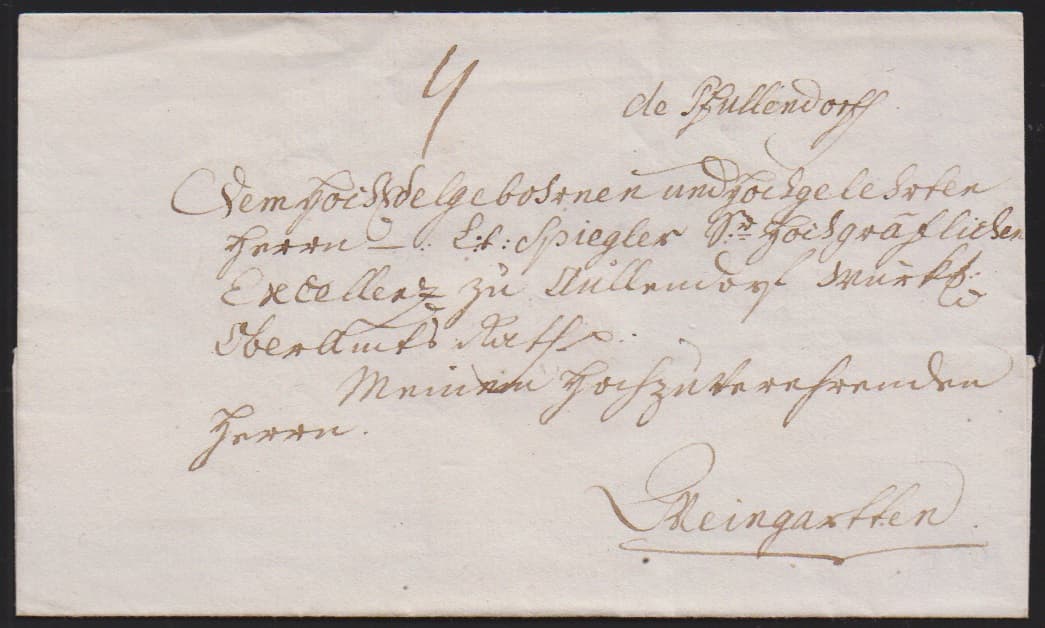 4
de Pfullendorff
Dem HochEdelgebohrnen und Hochgelehrten
Herrn Spiegler Sr. Hochgräflichen
Excellenz zu Aullendorf Würkl:
OberAmts Rath
Meinem Hochzuverehrenden
Herrn.
Weingartten.